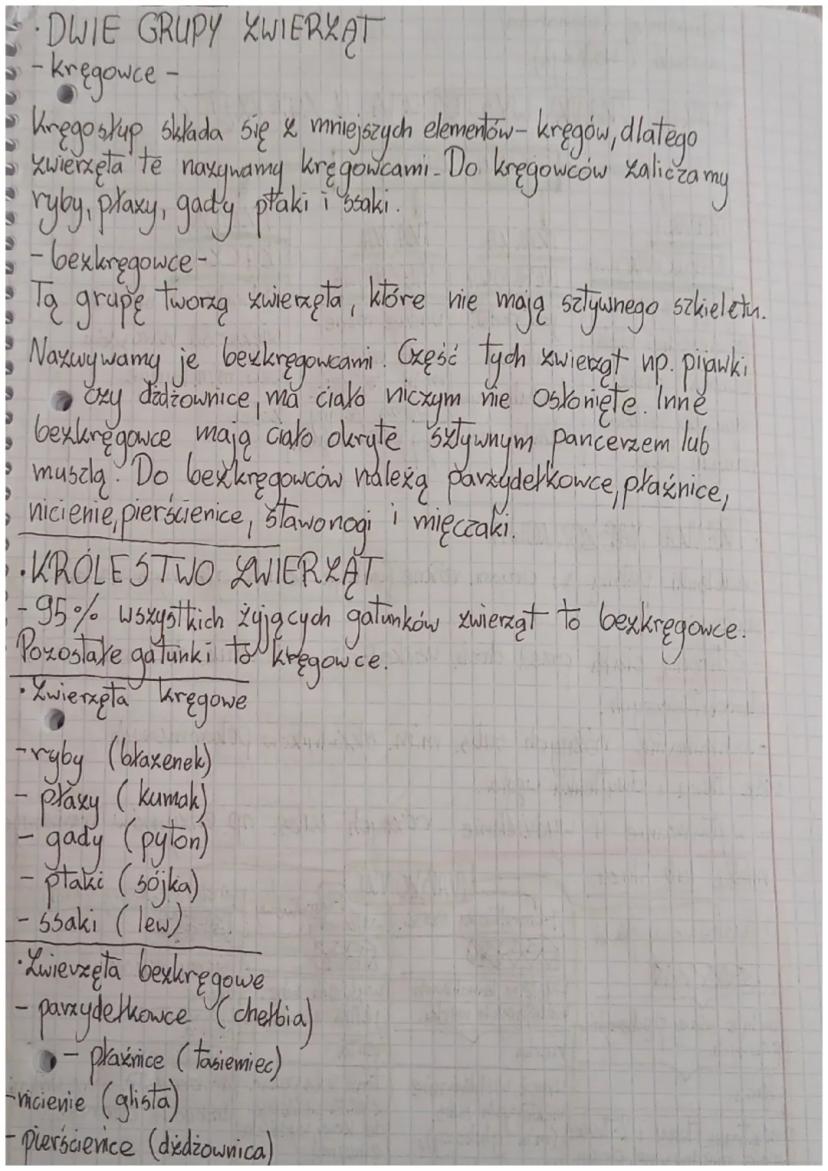 · DWIE GRUPY ZWIERZĄT
- kręgowce -
Kręgosłup składa się z mniejszych elementów - kręgów, dlatego
zwierzęta te nazywamy kręgowcami. Do kręgowców zaliczamy
ryby, płazy, gady ptaki i ssaki.
- bezkręgowce -
Tą grupę tworzą zwierzęta, które nie mają sztywnego szkieletu.
Nazwywamy je bezkręgowcami. Część tych zwierząt np. pijawki
czy dżdżownice, ma ciało niczym nie osłonięte. Inne
bezkręgowce mają ciało okryte sztywnym pancerzem lub
muszlą. Do bezkręgowców należą parzydełkowce, płaźnice,
nicienie, pierścienice, stawonogi i mięczaki.
· KRÓLESTWO ZWIERZĄT
- 95% wszystkich żyjących gatunków zwierząt to bezkręgowce.
Pozostałe gatunki to kręgowce.
· Zwierzęta kręgowe
- ryby (błazenek)
- płazy (kumak)
- gady (pyton)
- ptaki (sójka)
- ssaki (lew)
· Zwierzęta bezkręgowe
- parzydełkowce (chełbia)
- płaźnice (tasiemiec)
- nicienie (glista)
- pierścienice (dżdżownica)